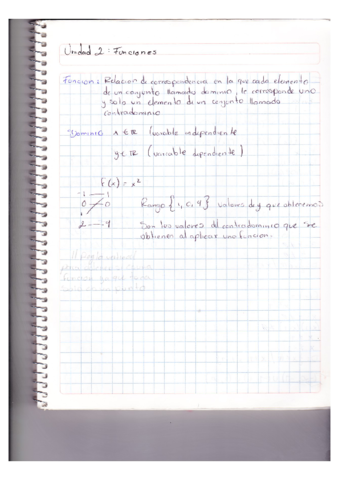 Unidad 2: Funciones
Funcion: Relacion de correspondencia en la que cada elemento
de un conjunto llamado dominio, le corresponde uno
y solo un elemento de un conjunto llamado
contradominio
Dominio x ∈ ℝ (variable independiente
y ∈ ℝ (variable dependiente)
f(x) = x²
-1 1
0 0 Rango {1, 0, 4} valores de y que obtenemos
2 4 Son los valores del contradominio que se
obtienen al aplicar una función.